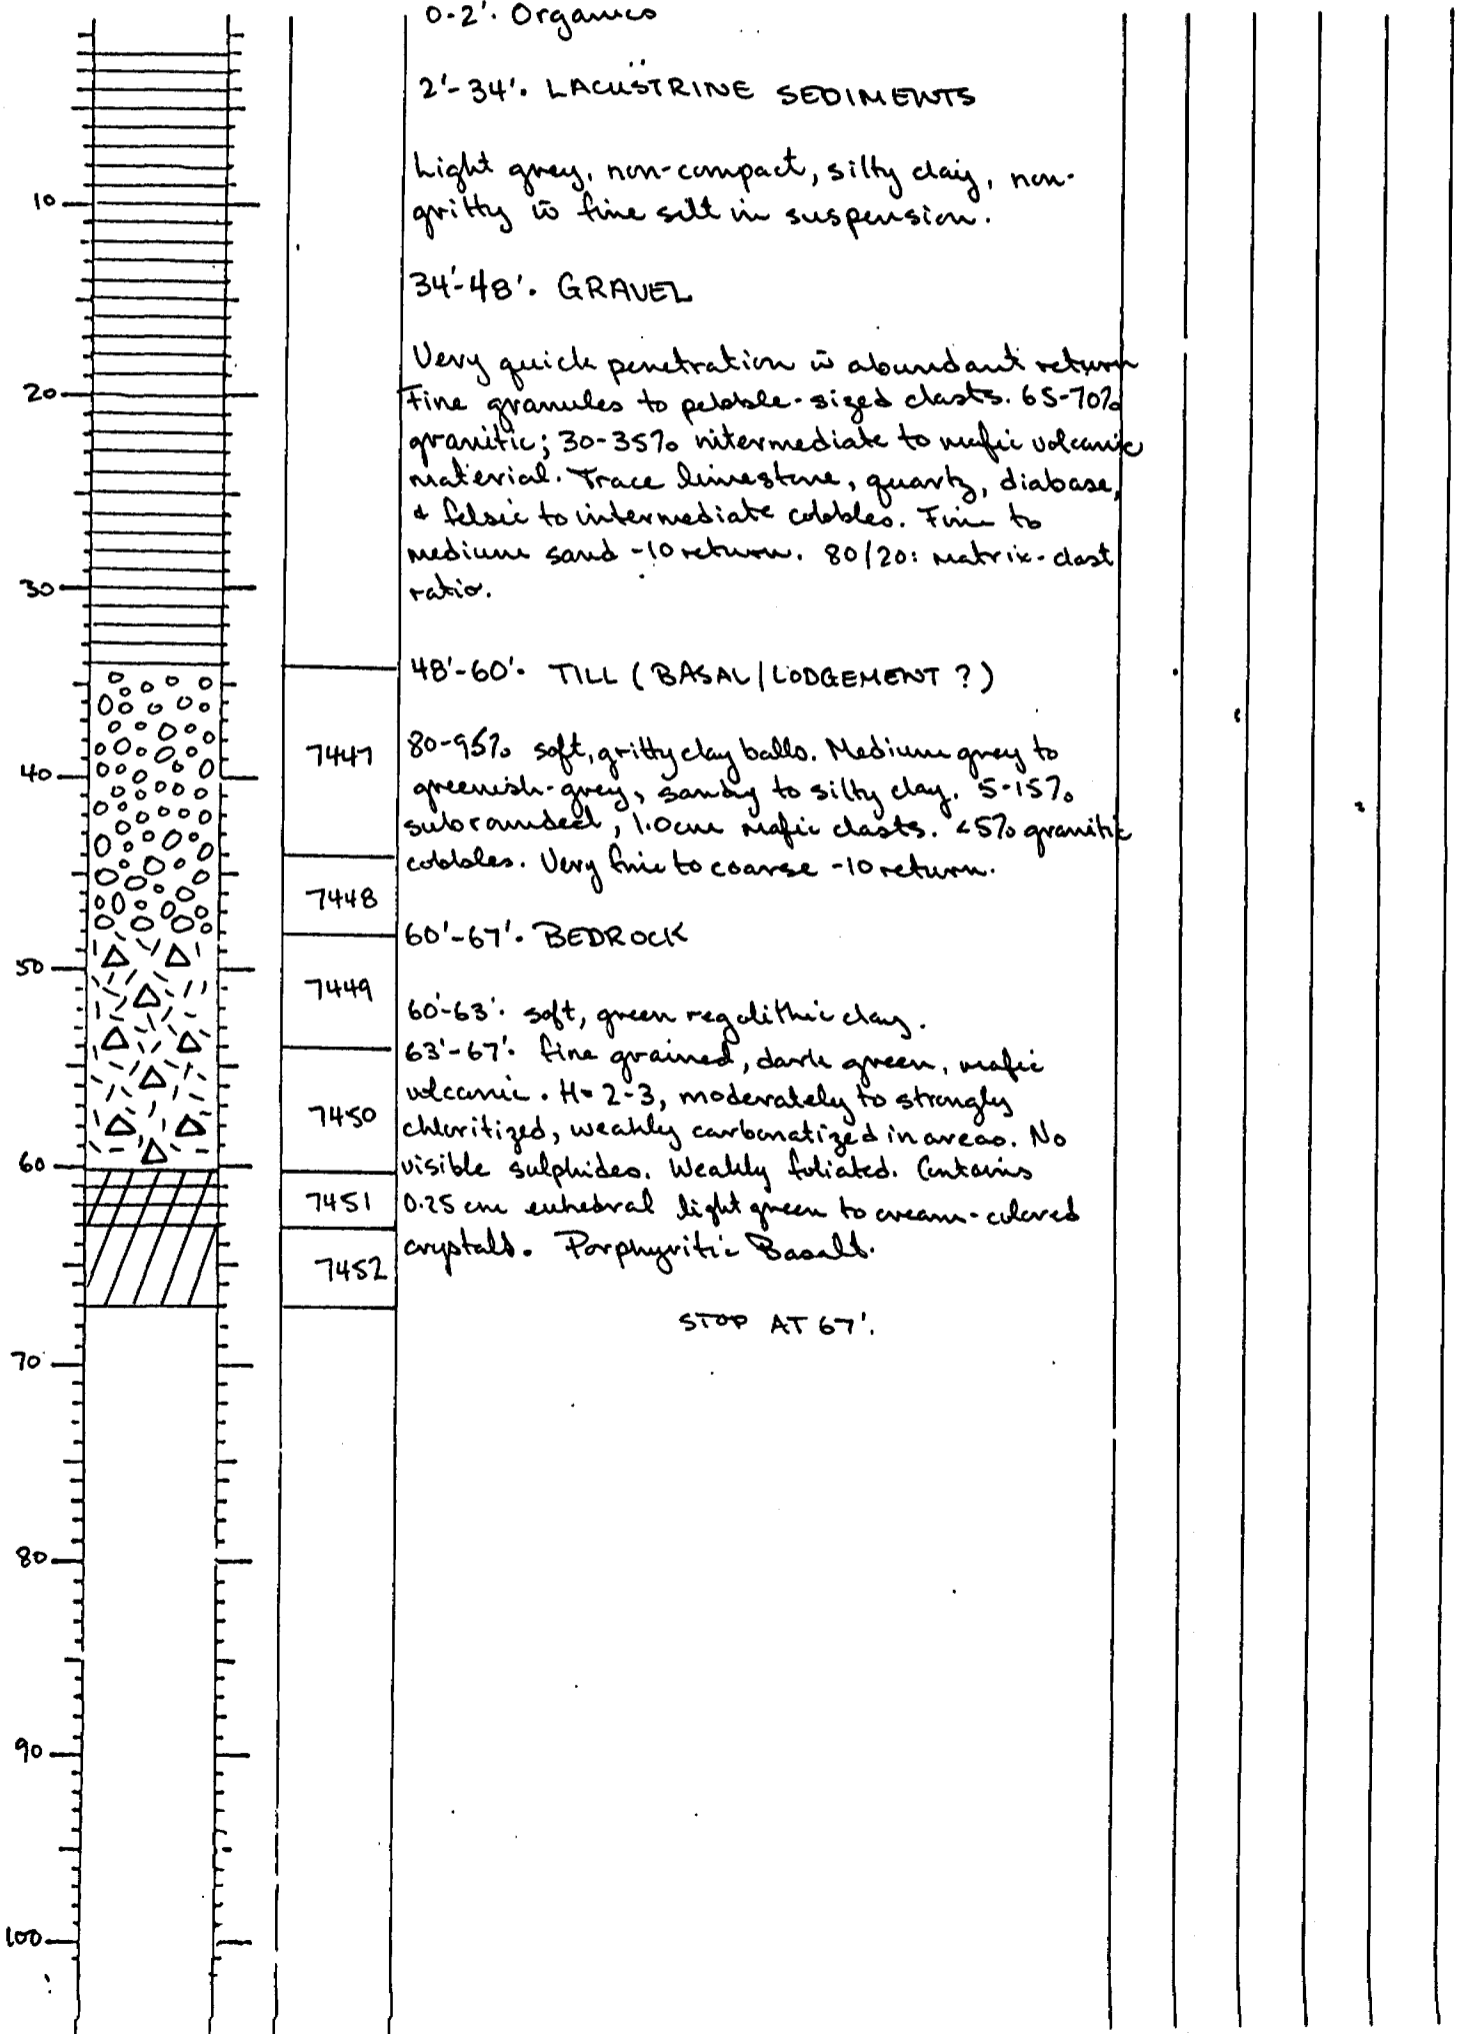 0-2'. Organics
2'-34'. LACUSTRINE SEDIMENTS
Light grey, non-compact, silty clay, non-
gritty w̄ fine silt in suspension.
10
34'-48'. GRAVEL
Very quick penetration w̄ abundant return
20
Fine granules to pebble-sized clasts. 65-70%
granitic; 30-35% intermediate to mafic volcanic
material. Trace limestone, quartz, diabase,
& felsic to intermediate cobbles. Fine to
medium sand -10 return. 80/20: matrix-clast
30
ratio.
48'-60'. TILL (BASAL/LODGEMENT ?)
7447
80-95% soft, gritty clay balls. Medium grey to
40
greenish-grey, sandy to silty clay. 5-15%
subrounded, 1.0cm mafic clasts. <5% granitic
cobbles. Very fine to coarse -10 return.
7448
60'-67'. BEDROCK
50
7449
60'-63'. soft, green regolithic clay.
63'-67'. fine grained, dark green, mafic
volcanic. H=2-3, moderately to strongly
7450
chloritized, weakly carbonatized in areas. No
60
visible sulphides. Weakly foliated. Contains
7451
0.25 cm euhedral light green to cream-colored
crystals. Porphyritic Basalt.
7452
STOP AT 67'.
70
80
90
100